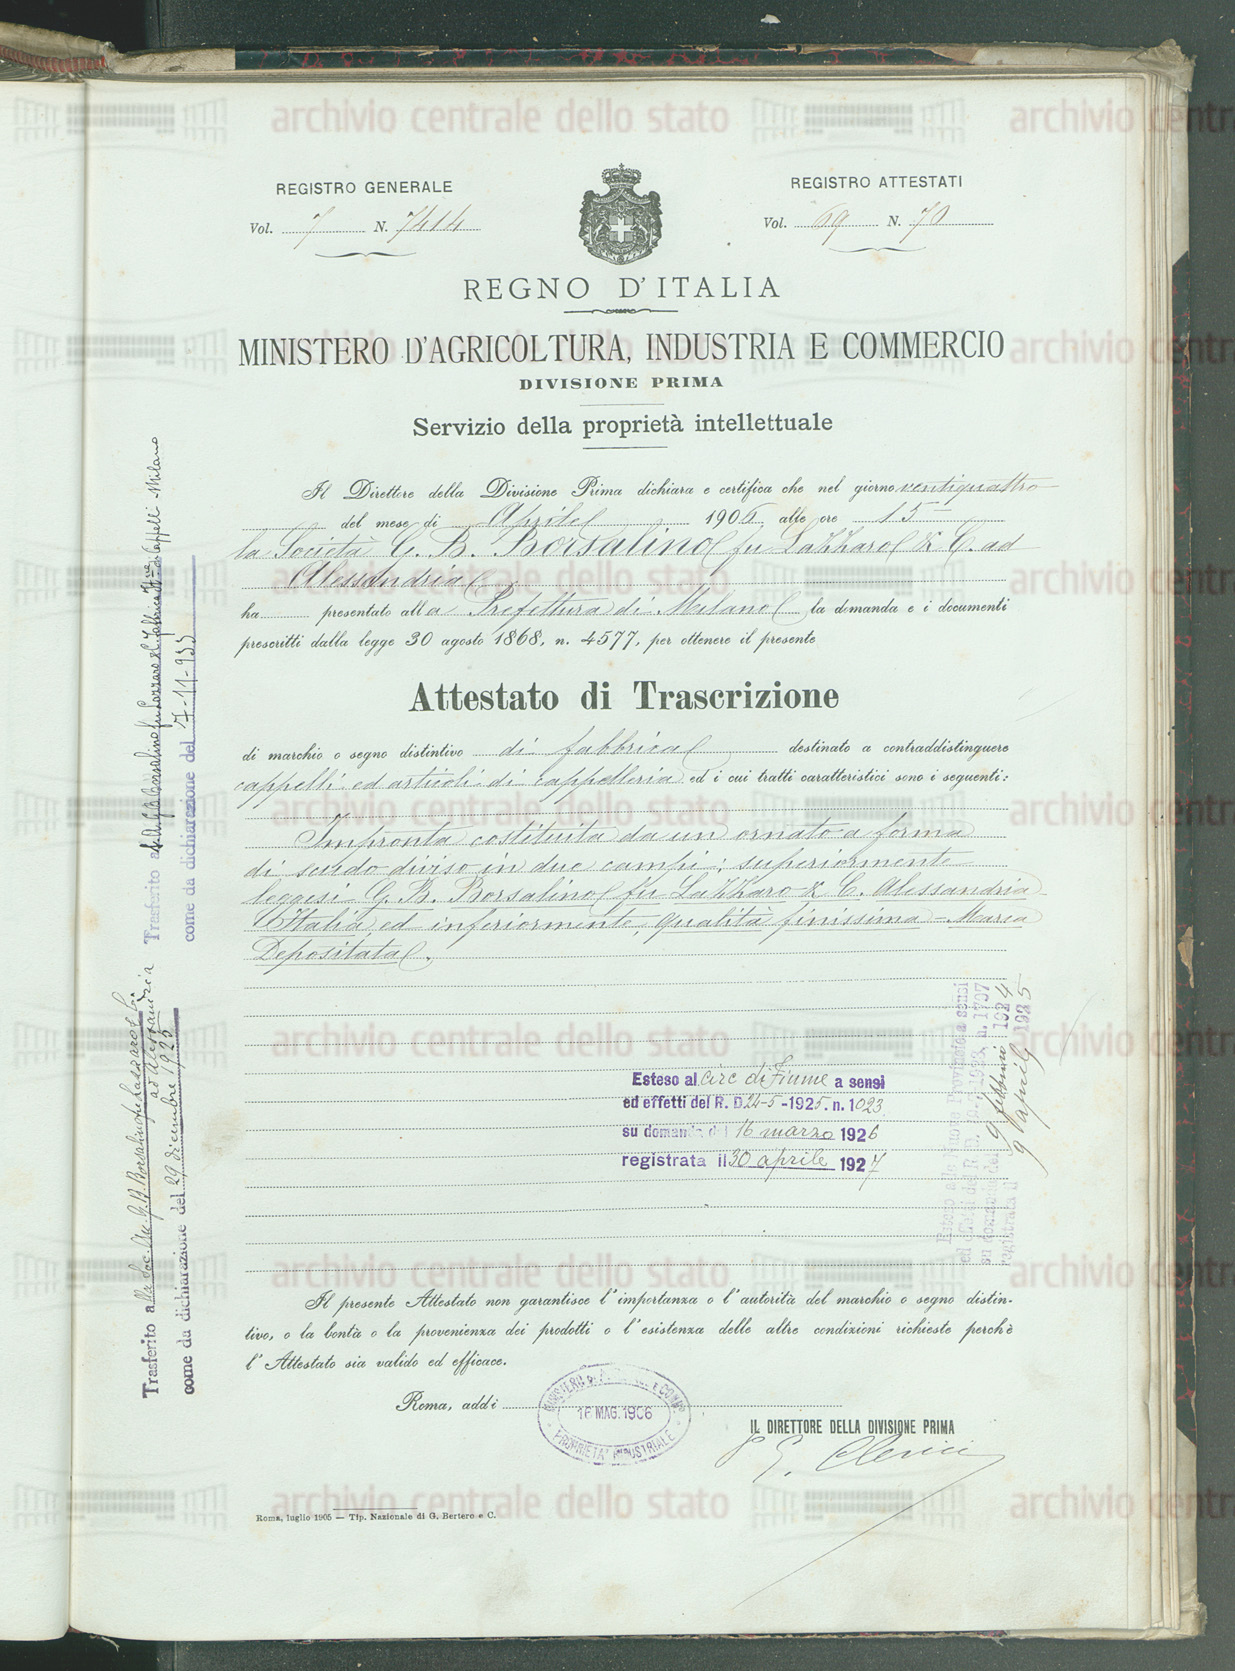 REGISTRO GENERALE
Vol. 7 N. 7414
REGISTRO ATTESTATI
Vol. 69 N. 70
REGNO D'ITALIA
MINISTERO D'AGRICOLTURA, INDUSTRIA E COMMERCIO
DIVISIONE PRIMA
Servizio della proprietà intellettuale
Il Direttore della Divisione Prima dichiara e certifica che nel giorno ventiquattro
del mese di Aprile 1906 alle ore 15
la Società G. B. Borsalino fu Lazzaro & C. ad
Alessandria
ha presentato alla Prefettura di Milano la domanda e i documenti
prescritti dalla legge 30 agosto 1868, n. 4577, per ottenere il presente
Attestato di Trascrizione
di marchio o segno distintivo di fabbrica destinato a contraddistinguere
cappelli ed articoli di cappelleria ed i cui tratti caratteristici sono i seguenti:
Impronta costituita da un ornato a forma
di scudo diviso in due campi; superiormente
leggesi G. B. Borsalino fu Lazzaro & C. Alessandria
Italia ed inferiormente, qualità finissima - Marca
Depositata.
Esteso al circ di Fiume a sensi
ed effetti del R. D. 24-5-1925. n. 1023
su domanda del 16 marzo 1926
registrata il 30 aprile 1927
Esteso alle Nuove Provincie a sensi
ed effetti del R. D. 1923, n. 1707
su domanda del 9 febbraio 1924
registrata il 9 aprile 1925
Il presente Attestato non garantisce l'importanza o l'autorità del marchio o segno distin-
tivo, o la bontà o la provenienza dei prodotti o l'esistenza delle altre condizioni richieste perchè
l'Attestato sia valido ed efficace.
Roma, addì
16 MAG. 1906
PROPRIETA' INDUSTRIALE
IL DIRETTORE DELLA DIVISIONE PRIMA
G. Clerici
Roma, luglio 1905 — Tip. Nazionale di G. Bertero e C.
Trasferito a S. A. G. B. Borsalino fu Lazzaro e C. Fabbrica di Cappelli Milano
come da dichiarazione del 7-11-935
Trasferito alla Soc. An. G. B. Borsalino fu Lazzaro & C.
ad Alessandria
come da dichiarazione del 29 dicembre 1925
archivio centrale dello stato